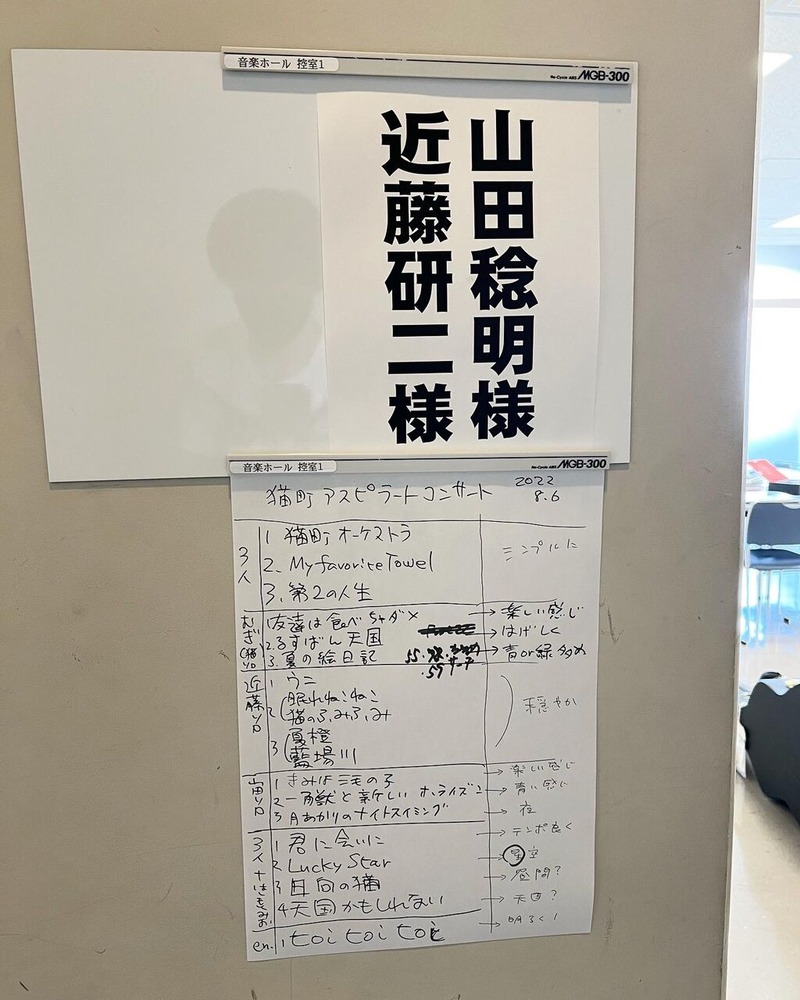 音楽ホール 控室1
Re-Cycle ABS MGB-300
山田稔明様
近藤研二様
音楽ホール 控室1
Re-Cycle ABS MGB-300
猫町アスピラートコンサート
2022
8.6
3人
1 猫町オーケストラ
2. My favorite Towel
3. 第2の人生
シンプルに
むぎ(猫)ソロ
1 友達は食べちゃダメ
→ 楽しい感じ
2. るすばん天国
→ はげしく
3. 夏の絵日記
→ 青or緑多め
近藤ソロ
1 ウニ
2 眠れねこねこ
猫のふみふみ
3 夏橙
藍場川
穏やか
山田ソロ
1 きみは三毛の子
→ 楽しい感じ
2 一角獣と新しいホライズン
→ 青い感じ
3 月あかりのナイトスイミング
→ 夜
3人+はしもとみお
1 君に会いに
→ テンポ良く
2 Lucky Star
→ 星空
3 日向の猫
→ 昼間?
4 天国かもしれない
→ 天国?
en.
1 toi toi toi
→ 明るく!